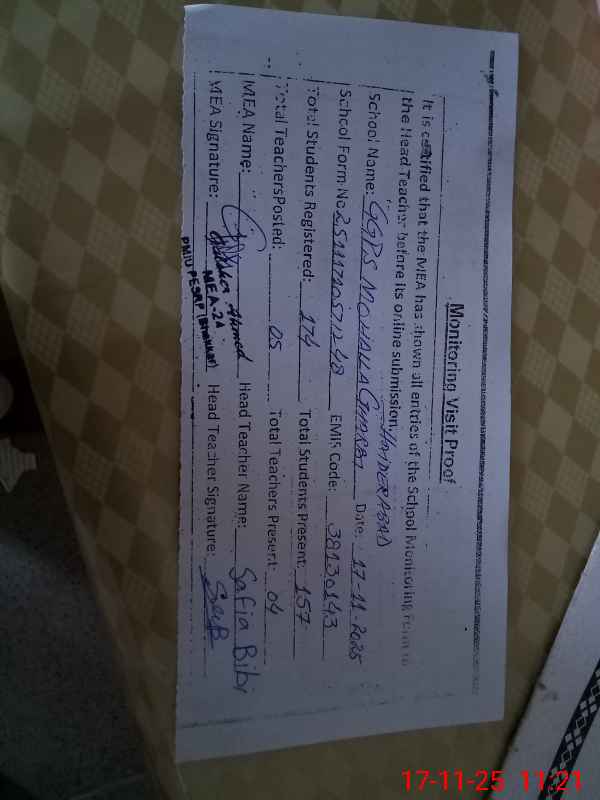 Monitoring Visit Proof
It is certified that the MEA has shown all entries of the School Monitoring Form to
the Head Teacher before its online submission.
School Name: GGPS MOHALLA GHARBI HAIDERABAD Date: 17-11-2025
School Form No. EMIS Code: 38130143
Total Students Registered: 174 Total Students Present: 157
Total Teachers Posted: 05 Total Teachers Present: 04
MEA Name: Ahmed Head Teacher Name: Safia Bibi
MEA Signature: Head Teacher Signature:
MEA-2A
PMIU PESRP (Bhakkar)
17-11-25 11:21